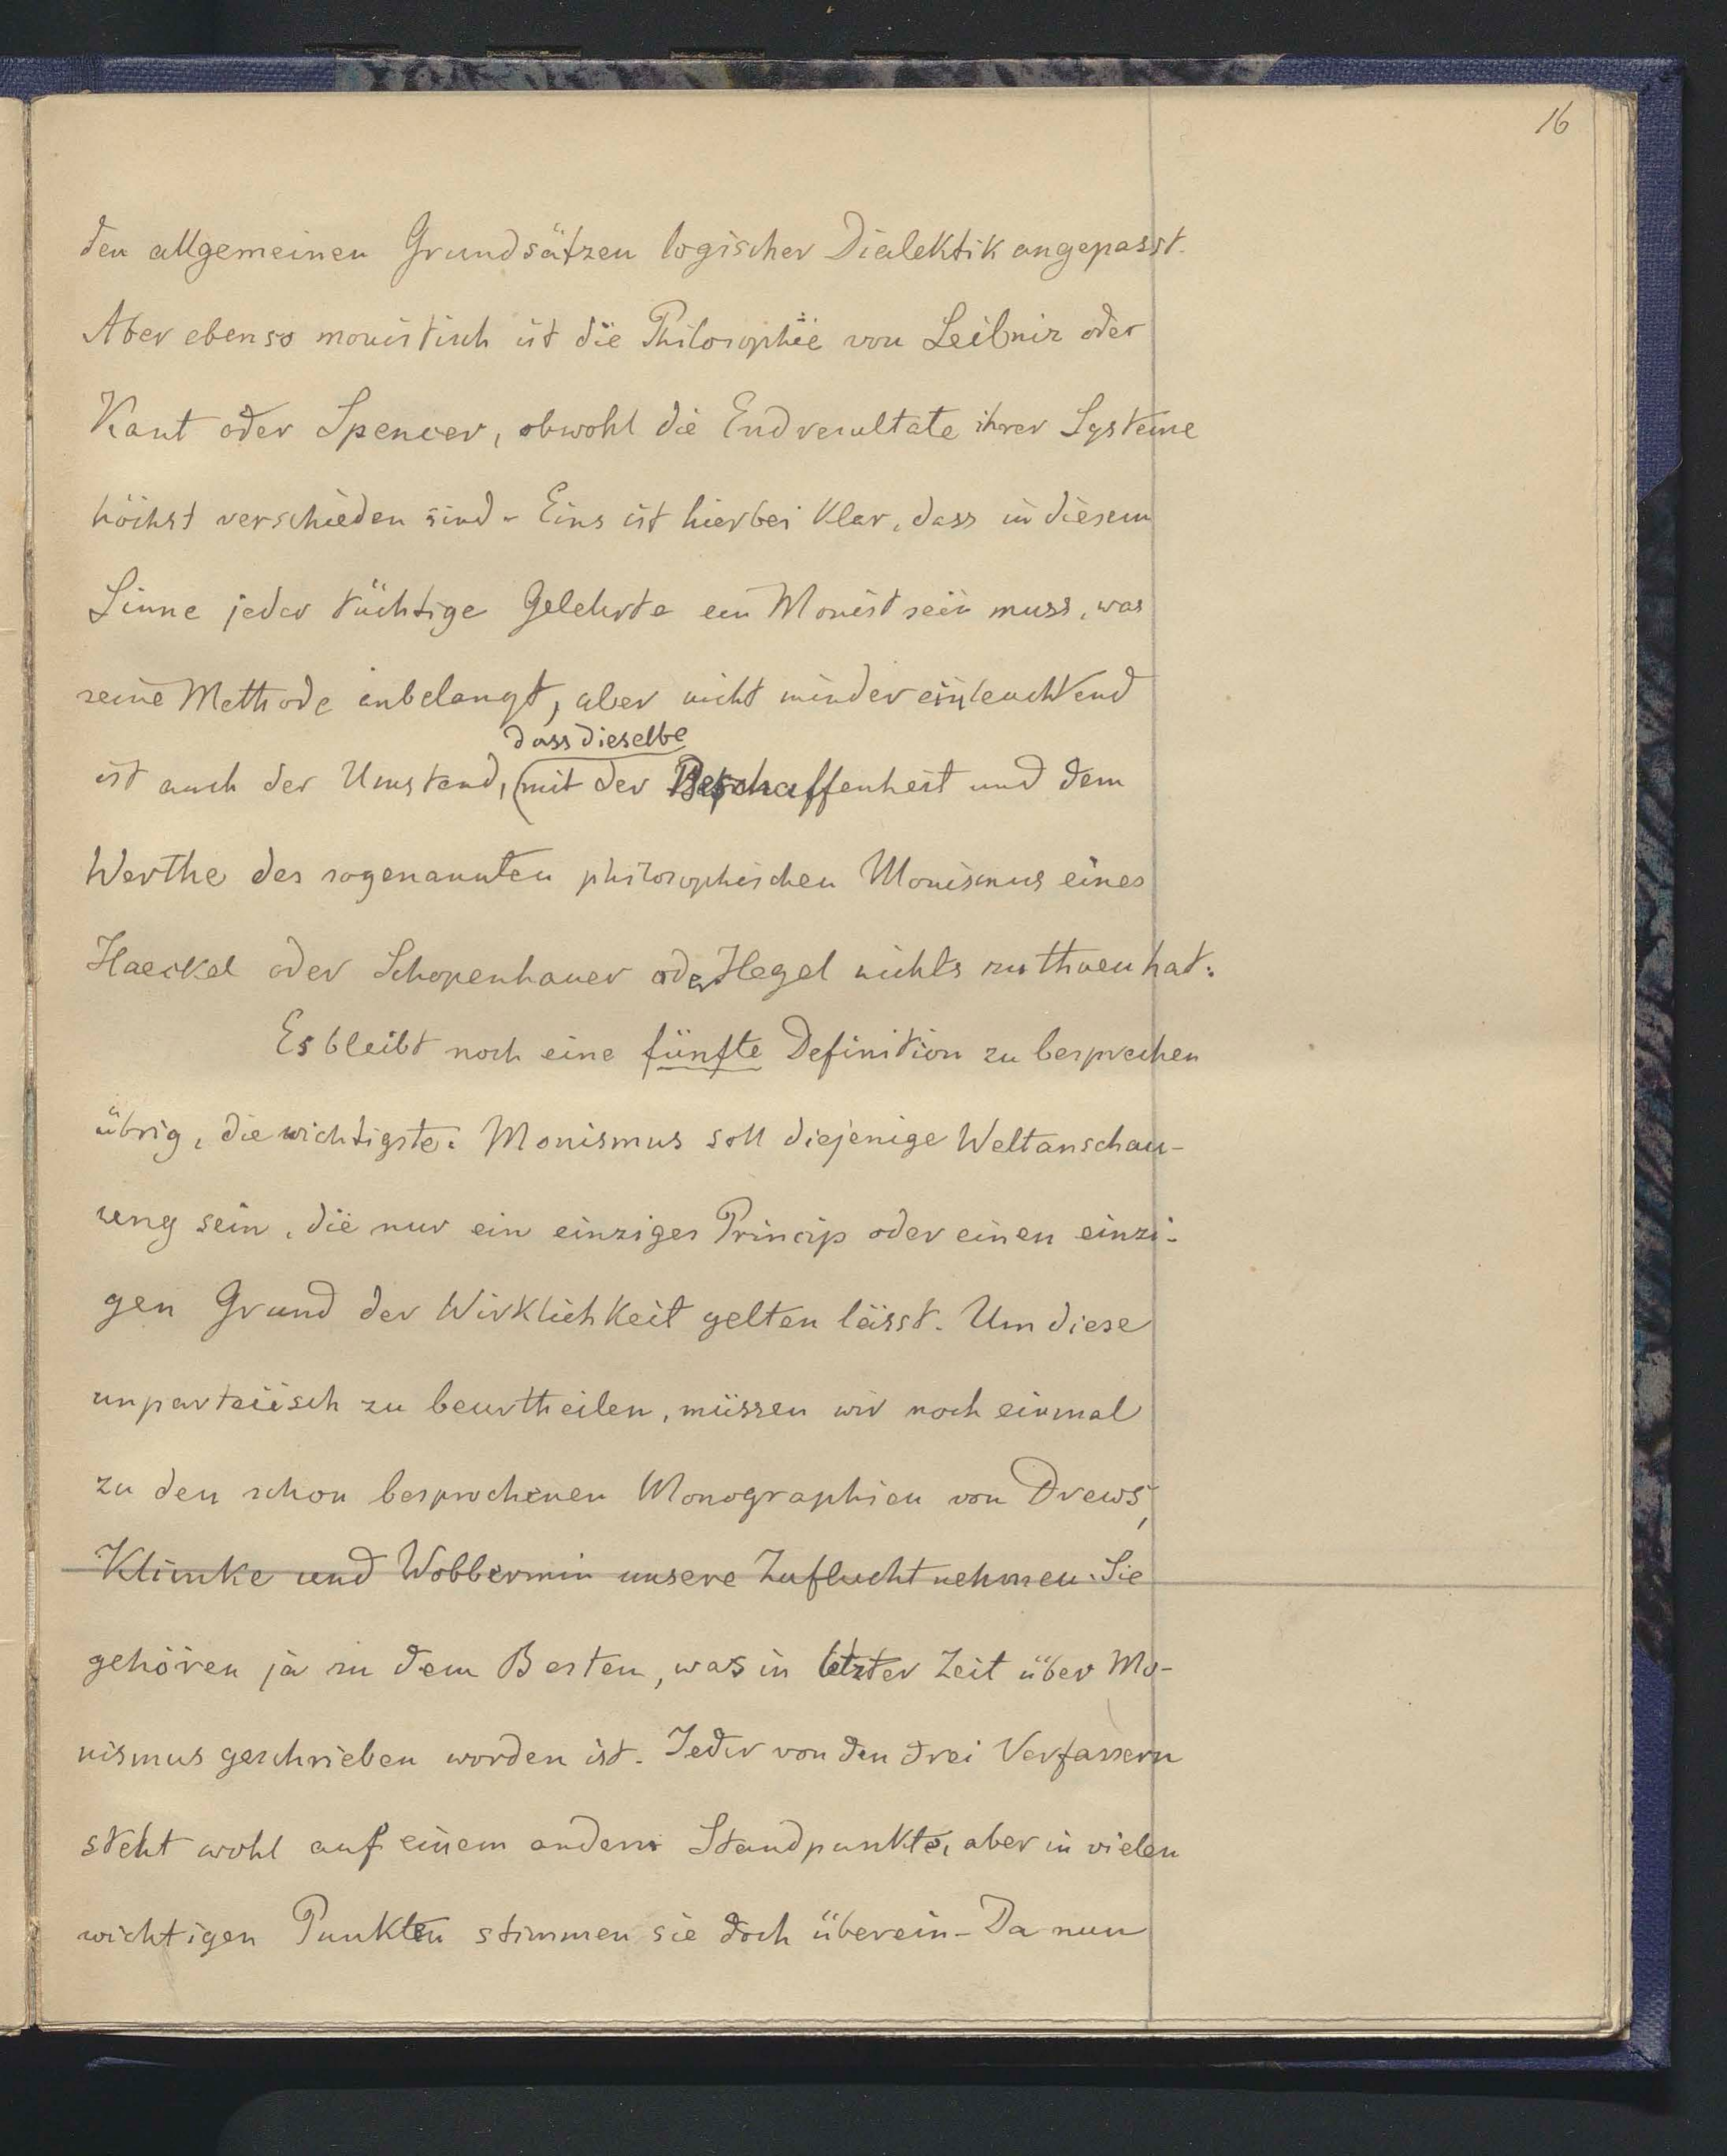 16
den allgemeinen Grundsätzen logischer Dialektik angepasst.
Aber ebenso monistisch ist die Philosophie von Leibniz oder
Kant oder Spencer, obwohl die Endresultate ihrer Systeme
höchst verschieden sind. Eins ist hierbei klar, dass in diesem
Sinne jeder tüchtige Gelehrte ein Monist sein muss, was
seine Methode anbelangt, aber nicht minder einleuchtend
dass dieselbe
ist auch der Umstand, (mit der Beschaffenheit und dem
Werthe des sogenannten philosophischen Monismus eines
Haeckel oder Schopenhauer oder Hegel nichts zu thuen hat.
Es bleibt noch eine fünfte Definition zu besprechen
übrig, die wichtigste. Monismus soll diejenige Weltanschau-
ung sein, die nur ein einziges Princip oder einen einzi-
gen Grund der Wirklichkeit gelten lässt. Um diese
unparteiisch zu beurtheilen, müssen wir noch einmal
zu den schon besprochenen Monographien von Drews,
Klimke und Wobbermin unsere Zuflucht nehmen. Sie
gehören ja zu dem Besten, was in letzter Zeit über Mo-
nismus geschrieben worden ist. Jeder von den drei Verfassern
steht wohl auf einem andern Standpunkte, aber in vielen
wichtigen Punkten stimmen sie doch überein. Da nun